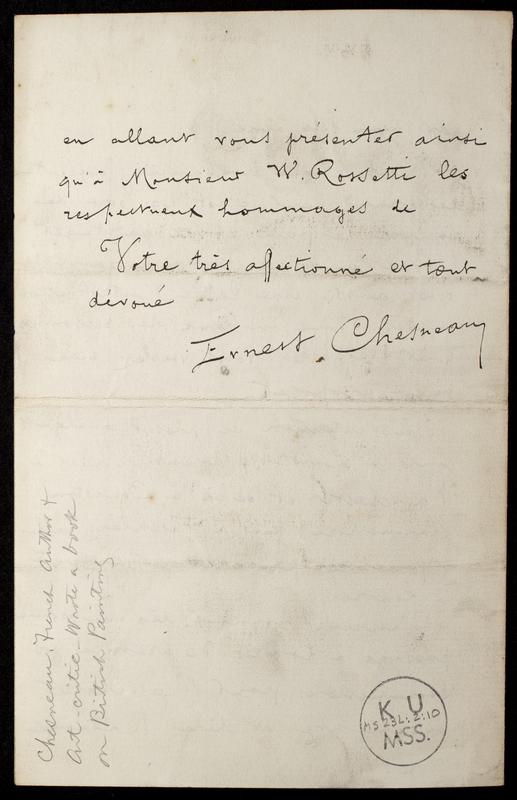 en allant vous présenter ainsi
qu'à Monsieur W. Rossetti les
respectueux hommages de
Votre très affectionné et tout
dévoué
Ernest Chesneau
Chesneau, French Author &
Art-critic - Wrote a book
on British Painting
K U
MS 23L:2:10
MSS.